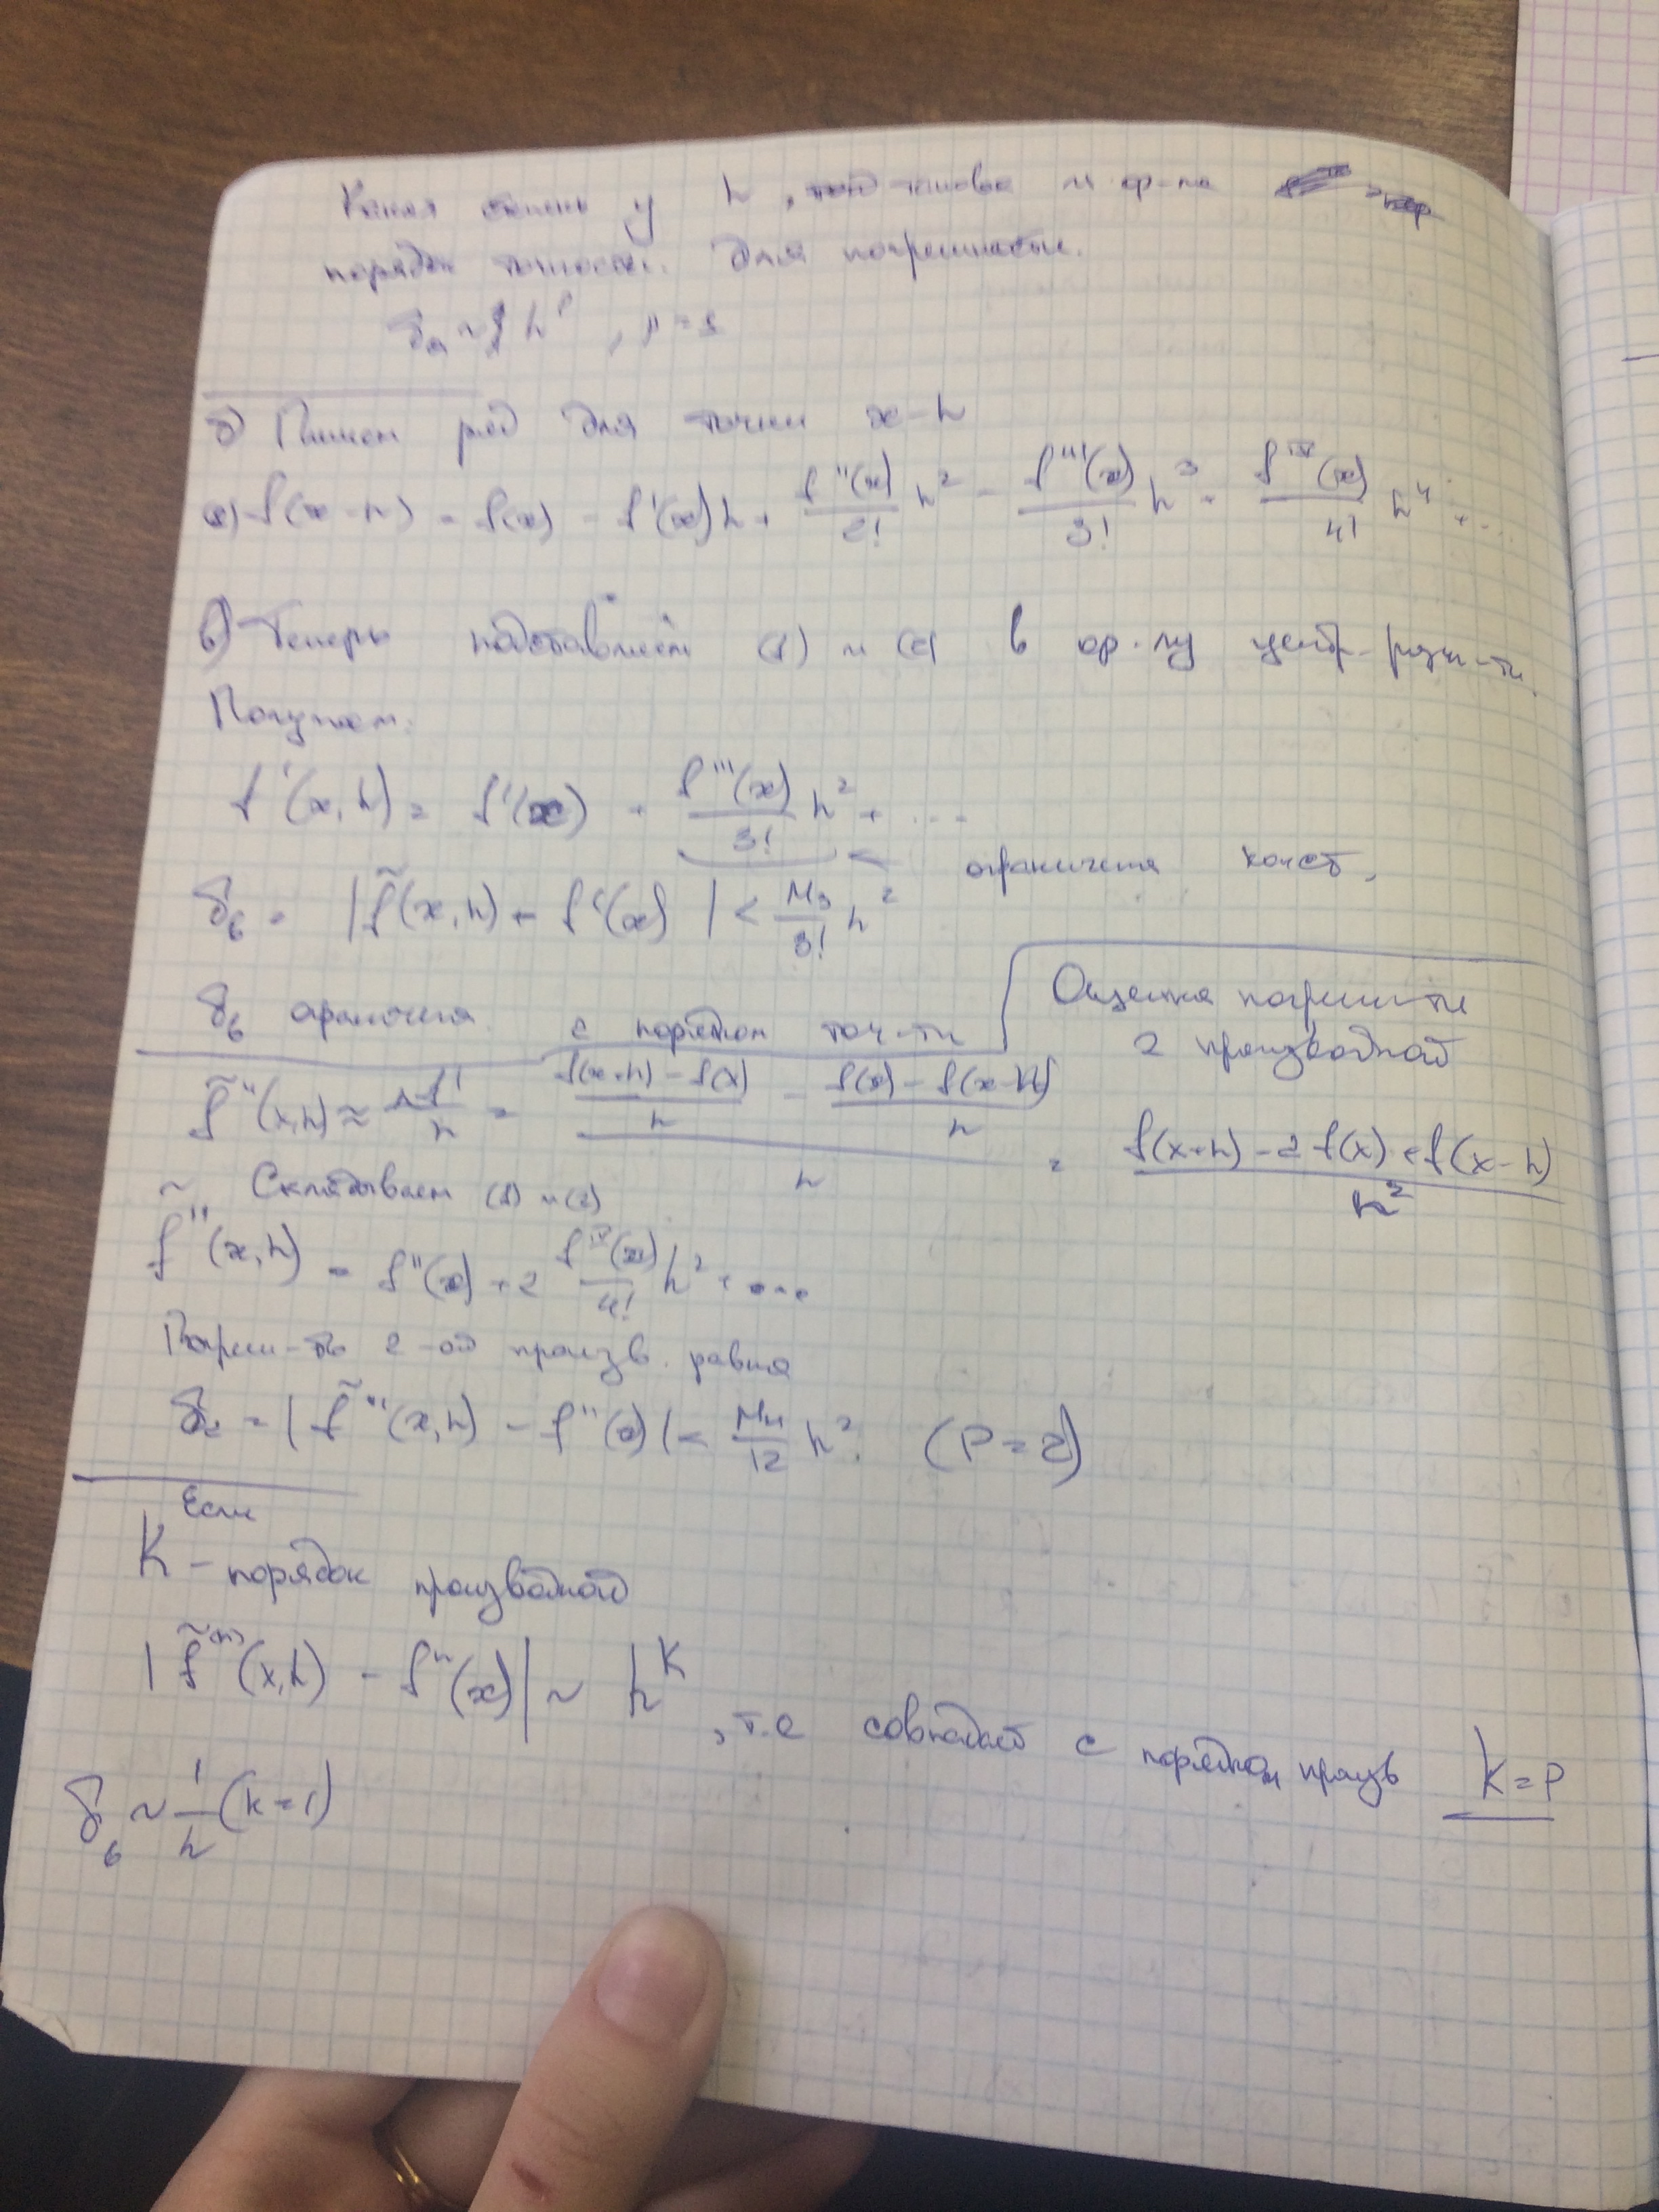 Какая степень у h, такова и ф-ла
порядок точности. Для погрешности.
δa ~ h^p, p = 1
б) Пишем ряд для точки x-h
(2) f(x-h) = f(x) - f'(x)h + f''(x)/2! h² - f'''(x)/3! h³ + f^IV(x)/4! h⁴ + ...
в) Теперь подставляем (1) и (2) в ф-лу центр. разн-ти.
Получаем:
f'(x,h) = f'(x) + f'''(x)/3! h² + ...
ограничена конст.
δв = |f̃(x,h) - f'(x)| < M₃/3! h²
δв ограничена 2 порядком точ-ти
Оценка погреш-ти
2 производной
f̃''(x,h) ≈ Δf'/h = ((f(x+h) - f(x))/h - (f(x) - f(x-h))/h)/h = (f(x+h) - 2f(x) + f(x-h))/h²
Складываем (1) и (2)
f̃''(x,h) = f''(x) + 2 f^IV(x)/4! h² + ...
Погреш-ть 2-ой произв. равна
δ₂ = |f̃''(x,h) - f''(x)| < M₄/12 h². (P = 2)
Если
K - порядок производной
|f̃^(n)(x,h) - f^n(x)| ~ h^K, т.е совпадает с порядком произв K = P
δв ~ 1/h (k=1)